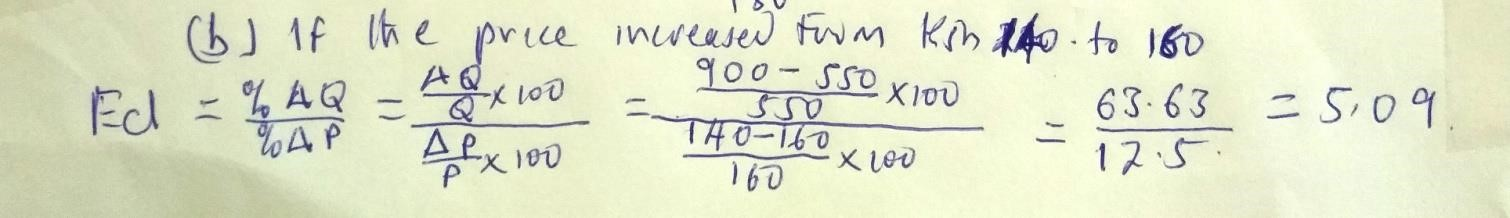 (b) If the price increased from Ksh 140. to 160
Ed = %ΔQ/%ΔP = (ΔQ/Q × 100)/(ΔP/P × 100) = (900-550/550 ×100)/(140-160/160 ×100) = 63.63/12.5. = 5.09.